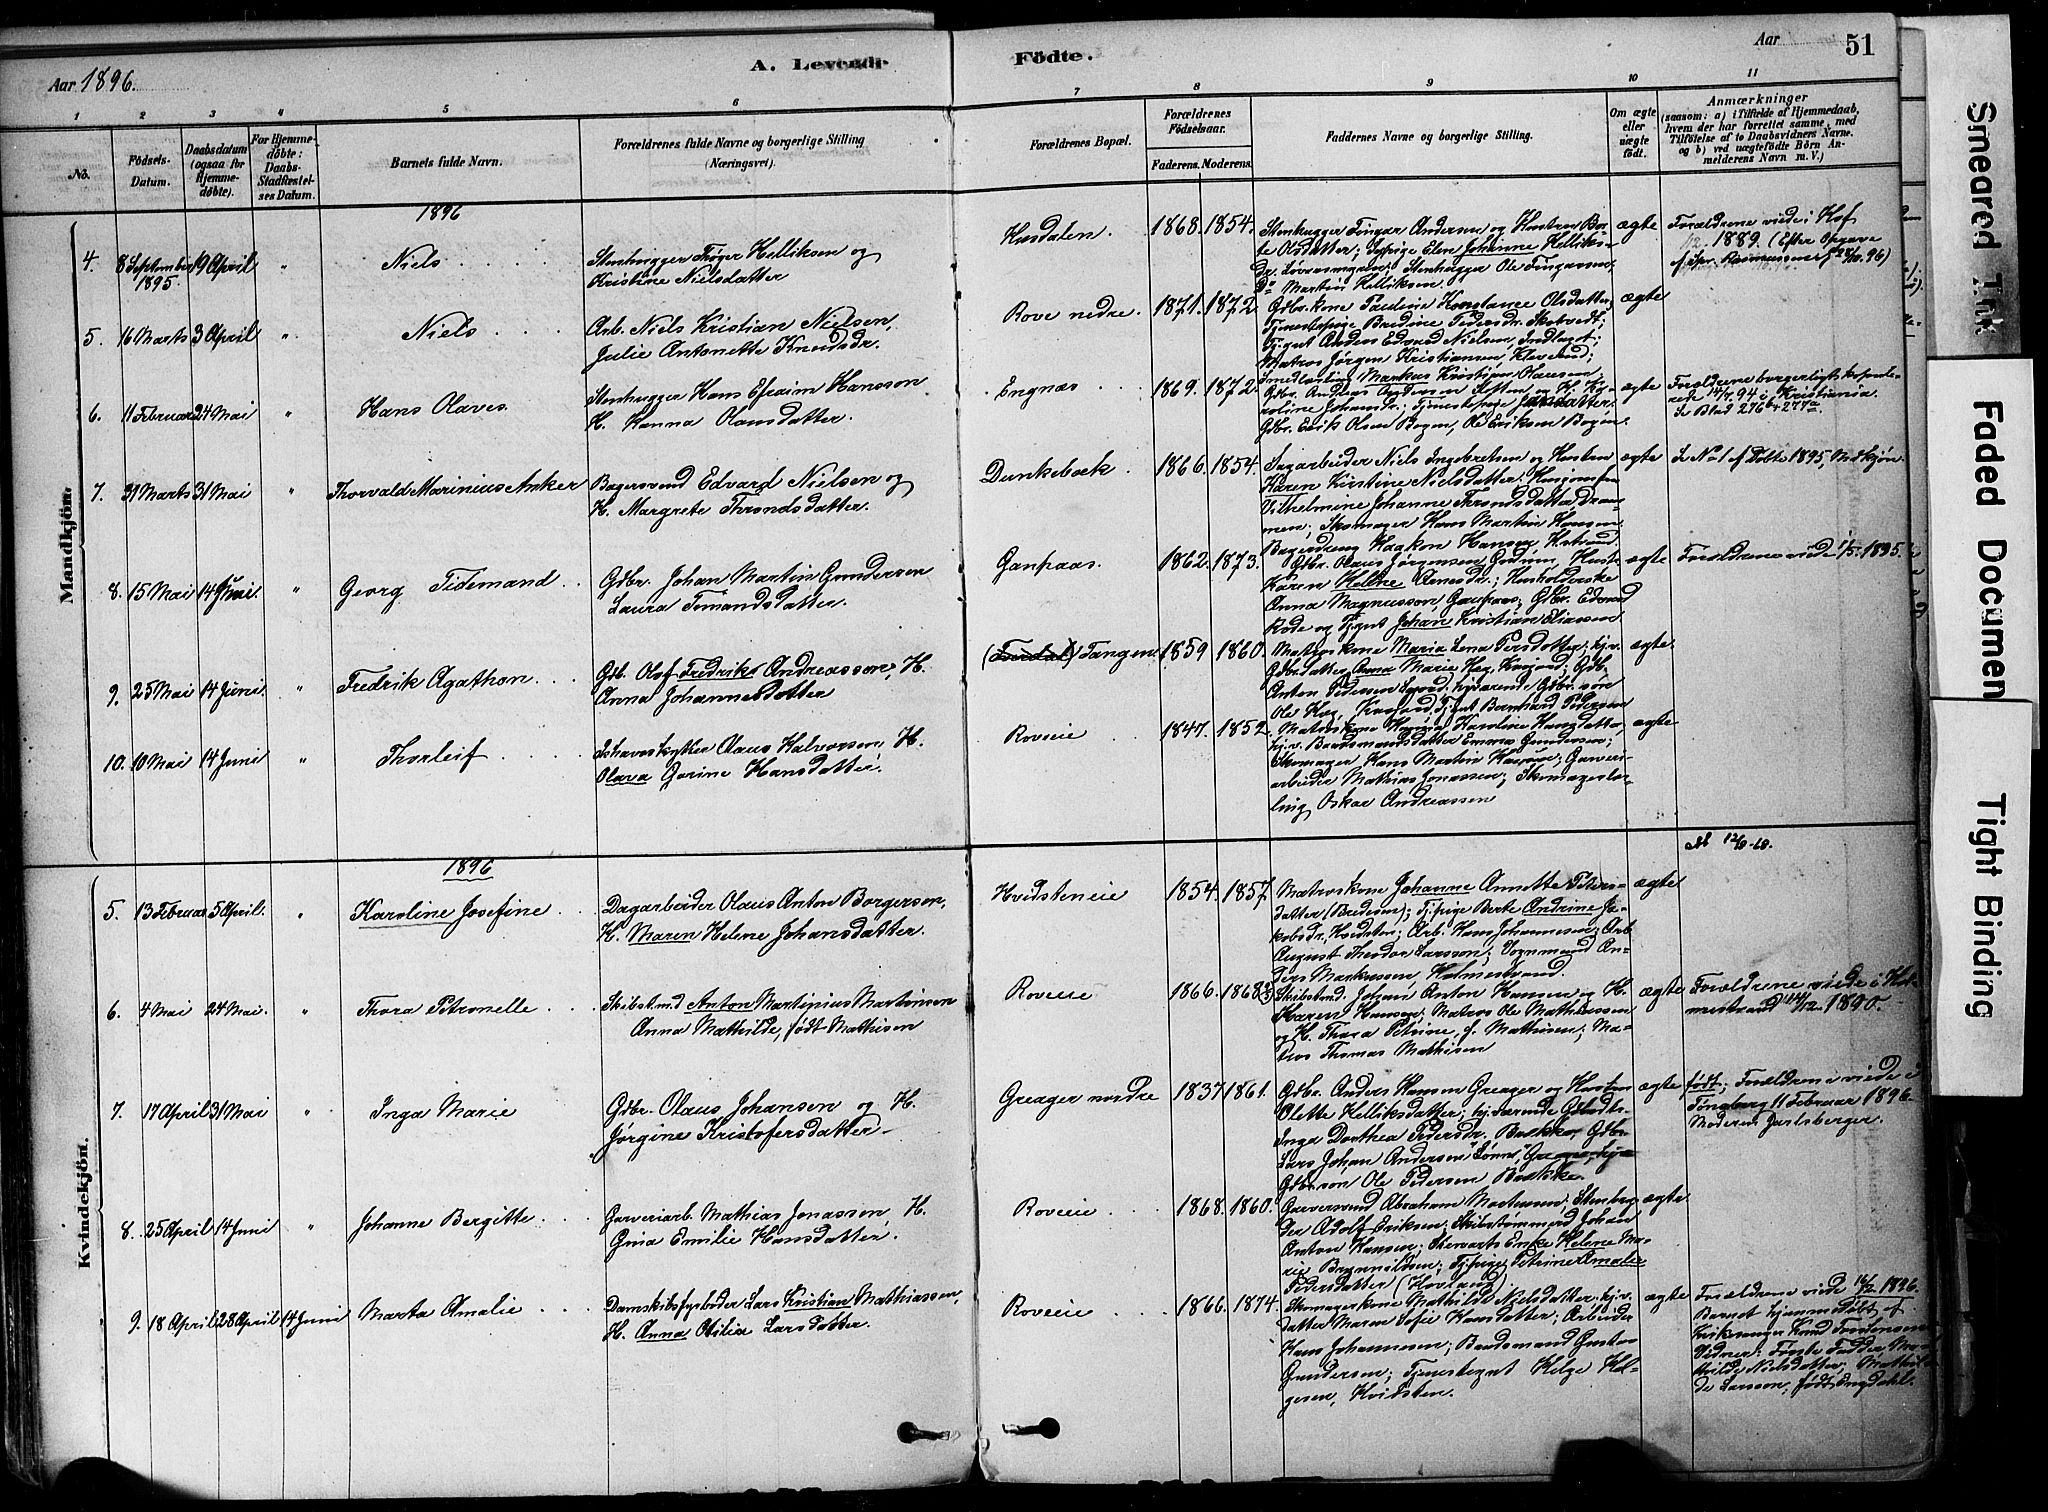 Aar 1896.
A. Levende
Födte.
Aar
51
1
2
3
4
5
6
7
8
9
10
11
No.
Födsels-
Datum.
Daabsdatum
(ogsaa for
Hjemme-
döbte).
For Hjemme-
döbte:
Daabs-
Stadfæstel-
ses Datum.
Barnets fulde Navn.
Forældrenes fulde Navne og borgerlige Stilling
(Næringsvei).
Forældrenes Bopæl.
Forældrenes
Födselsaar.
Faderens. Moderens.
Faddernes Navne og borgerlige Stilling.
Om ægte
eller
uægte
födt.
Anmærkninger
(saasom: a) i Tilfælde af Hjemmedaab,
hvem der har forrettet samme, med
Tilföielse af to Daabsvidners Navne.
og b) ved uægtefödte Börn An-
melderens Navn m. V.)
Mandkjön.
1896
4. 8 September 1895. 19 April " Niels
Stenhugger Trøger Helliksen og
Kristine Nielsdatter
1868. 1854.
Stenhugger Tingar Andersen og Hustren Ber-
te Olsdatter; Tjpige Elen Johanne Helliks-
Stenhugger Ole Tingarsen,
Do Martin Helliksen.
ægte
Forældrene viede i Hof
1889. (Efter Opgave
5. 16 Marts 3 April " Niels
Arb. Niels Kristian Nielsen,
Julie Antonette Knudsdr.
Rove nedre. 1871. 1872.
Gdbr.kone Pauline Konstance Olsdatter;
Tjenestepige Bredine Pedersdr. Skotvedt;
Tj.gut Anders Edvard Nielsen Indlaget;
Matros Jørgen Kristiansen Kleveland;
ægte
6. 11 Februar 24 Mai " Hans Olaves.
Stenhugger Hans Efraim Hansson
H. Hanna Olausdatter.
Engnæs 1869. 1872.
Smedlærling Markus Kristian Olaussen;
Gdbr. Andreas Andersen Sletten og H. Ka-
roline Johansdr.; Tjenestepige
Gdbr. Erik Olsen Bogen, Ole Eriksen Bogen.
ægte
Forældrene borgerligt kopule-
rede 14/7 94 i Kristiania.
Se Blad 276b + 277a.
7. 31 Marts 31 Mai " Thorvald Marinius Anker
Bagersvend Edvard Nielsen og
H. Margrete Throndsdatter.
Dunkebæk. 1866. 1854.
Sagarbeider Niels Ingebretsen og Hustru
Karen Kirstine Nielsdatter; Husjomfru
Vilhelmine Johanne Throndsdatter, Dram-
men; Skomager Hans Martin Hansen
Bagerdreng Haakon Hansen
ægte
Se No 1 af Döbte 1895, Mdkjön.
8. 15 Mai 14 Juni. " Georg Tidemand
Gdbr. Johan Martin Gundersen
Laura Tomandsdatter.
Gaupaas. 1862. 1873.
Gdbr. Olaus Jørgensen Hustr.
Karen Helene Arnesdr.; Husholderske
Anna Magnusson, Gaupaas; Gdbr. Edvard
Rode og Tj.gut Johan Kristian Eliassen
ægte
Forældrene viede 1/5 1895.
9. 25 Mai 14 Juni. " Fredrik Agathon.
Gdb. Olaf Fredrik Andreasson, H.
Anna Johannesdatter
Tangen 1859 1860.
Matroskone Maria Lena Persdatter; hjv.
Gdbr.datter Anna Marie Hag, Gdb.
Anton Pedersen hjværende Gdbr. søn
Ole Hag, Tj.gut Bernhard Pedersen
ægte.
10. 10 Mai 14 Juni " Thorleif
Ishavsskytter Olaus Halvorsen, H.
Olava Gorine Hansdatter.
Roveie 1847. 1852.
Matroskone Karoline Hansdatter,
hjv. Baadsmandsdatter Emma Gundersen;
Skomager Hans Martin Hansen; Garveri-
arbeider Mathias Jonassen; Skomagerlær-
ling Oskar Andreassen
ægte
Kvindekjön.
1896
5. 13 Februar 5 April. " Karoline Josefine
Dagarbeider Olaus Anton Borgersen,
H. Maren Helene Johansdatter.
Hvidsteneie 1854. 1857.
Matroskone Johanne Annette Peters-
datter (Bredesen); Tj.pige Berte Andrine Ja-
kobsdr., Hvidsten; Arb. Hans Johannesen; Arb.
August Theodor Larsson; Vognmand An-
ders Markussen, Holmestrand.
ægte
6. 4 Mai 24 Mai. " Thora Petronelle
Skibstmd Anton Martinius Martinsen
Anna Mathilde, født Mathisen
Roveie 1866. 1868
Skibstmd. Johan Anton Hansen og H.
Karen Hansen; Matros Ole Mathiassen
og H. Thora Petrine f. Mathisen; Ma-
tros Thomas Mathisen
ægte
Forældrene viede i Hol-
mestrand 1890.
7. 17 April 31 Mai " Inga Marie
Gdbr. Olaus Johansen og H.
Jørgine Kristofersdatter
Greager nordre 1837 1861.
Gdbr. Anders Hansen Greager og Hustru
Olette Helliksdatter; hjværende Gdbrdtr.
Inga Dorthea Pedersdr. Bakke, Gdbr
Lars Johan Andersen
Gdbrsøn Ole Pedersen Bakke
ægte
født; Forældrene viede i
Tönsberg 11 Februar 1896.
Moderen Jarlsberger.
8. 25 April 14 Juni " Johanne Bergitte.
Garveriarb. Mathias Jonassen, H.
Gina Emilie Hansdatter.
Roveie 1868. 1860.
Garversvend Abraham Martinsen; Stenhug-
Adolf Eriksen; Skibstømmermd Johan
Anton Hansen; Enke Helene Ma-
rie Brynnildsen; Tj.pige Petrine Amalie
Pedersdatter (Hovland)
ægte
9. 18 April 28 April 14 Juni Marta Amalie
Damskibsfyrbøder Lars Kristian Mathiassen,
H. Anna Otilie Larsdatter.
Roveie 1866. 1874.
Skomagerkone Mathilde Nielsdatter; hjv.
datter Maren Sofie Hansdatter; Arbeider
Hans Johannesen; Baadsmand Gustav
Gundersen; Tjenestegut Helge Hel-
gesen, Hvidsten.
ægte
Forældrene viede 1896.
Barnet hjemmedöbt af
Kirkesanger Knud Torstensen
Vidner: Første Fadder, Ma-
thilde Nielsdatter; Mathil-
de Larsson, født Engdahl.
Smeared Ink
Faded Documen
Tight Binding